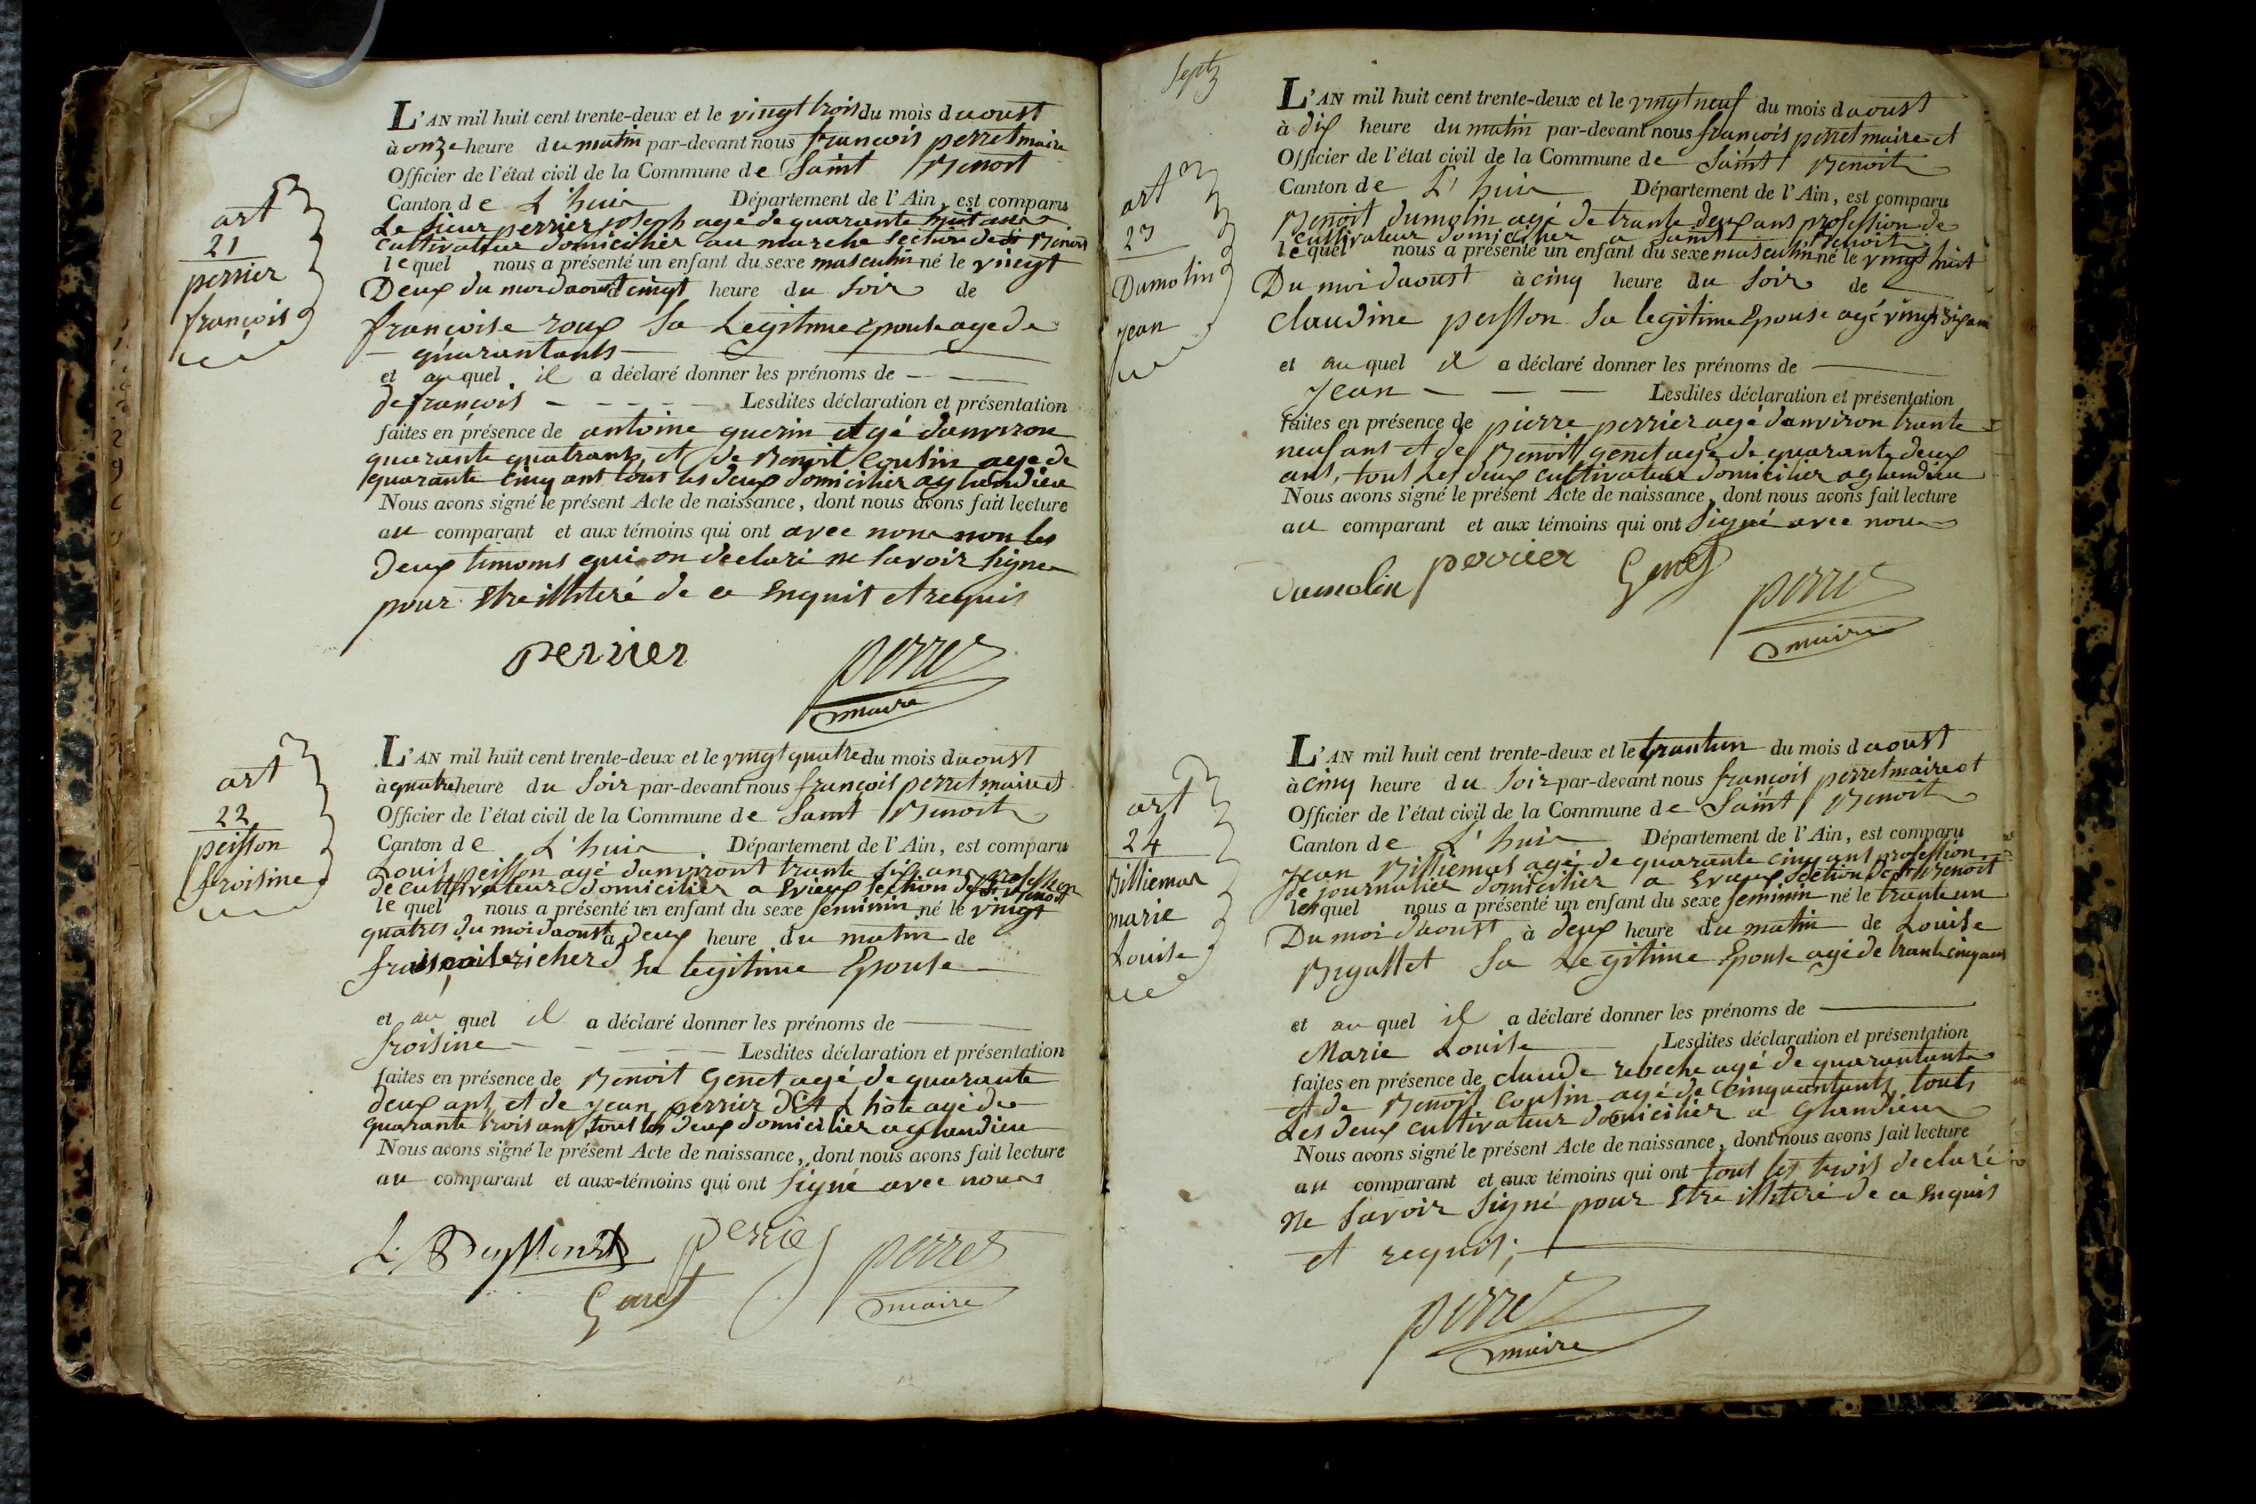 art
21
perrier
françois
L'AN mil huit cent trente-deux et le vingt trois du mois d aoust
à onze heure du matin par-devant nous françois perret maire
Officier de l'état civil de la Commune de Saint Benoit
Canton de L'huis Département de l'Ain, est comparu
Le sieur perrier joseph agé de quarante huit ans
cultivateur domicilier au marche section de St Benoit
le quel nous a présenté un enfant du sexe masculin né le vingt
Deux du moi daoust à cinqt heure du soir de
françoise roux sa Legitime Epouse age de
quarantants
et au quel il a déclaré donner les prénoms de
de françois Lesdites déclaration et présentation
faites en présence de antoine guerin et agé danviron
quarante quatrants et de Benoit Cousin age de
quarante cinq ant tous les deux domicilier a glandieu
Nous avons signé le présent Acte de naissance, dont nous avons fait lecture
au comparant et aux témoins qui ont avec nous non les
deux timoins qui on declaré ne savoir signer
pour Etre illiteré de ce Enquit et requis
perrier
perret
maire
art
22
peisson
froisine
L'AN mil huit cent trente-deux et le vingt quatre du mois d aoust
à quatre heure du soir par-devant nous françois perret maire et
Officier de l'état civil de la Commune de Saint Benoit
Canton de L'huis Département de l'Ain, est comparu
Louis peisson agé danviront trante six ans profession
de cultivateur domicilier a Evieux section de St Benoit
le quel nous a présenté un enfant du sexe feminin né le vingt
quatres du moi daoust à deux heure du matin de
richerd sa legitime Epouse
et au quel il a déclaré donner les prénoms de
froisine Lesdites déclaration et présentation
faites en présence de Benoit Genet agé de quarante
deux ans et de jean perrier dit L'hôte agé de
quarante trois ans tous les deux domicilier a glandieu
Nous avons signé le présent Acte de naissance, dont nous avons fait lecture
au comparant et aux témoins qui ont signé avec nous
L. Peyssont perrier perret
Genet maire
Sept
art
23
Dumolin
jean
L'AN mil huit cent trente-deux et le vingt neuf du mois d aoust
à dix heure du matin par-devant nous françois perret maire et
Officier de l'état civil de la Commune de Saint Benoit
Canton de L'huis Département de l'Ain, est comparu
Benoit dumolin agé de trante deux ans profession de
cultivateur domicilier a Saint Benoit
le quel nous a présenté un enfant du sexe masculin né le vingt huit
Du moi daoust à cinq heure du soir de
claudine peisson sa legitime Epouse agé vingt six ans
et au quel il a déclaré donner les prénoms de
jean Lesdites déclaration et présentation
faites en présence de pierre perrier agé danviron trante
neuf ans et de Benoit genet agé de quarante deux
ans, tout les deux cultivateur domicilier a glandieu
Nous avons signé le présent Acte de naissance, dont nous avons fait lecture
au comparant et aux témoins qui ont signé avec nous
Dumolin perrier Genet perret
maire
art
24
Billiemas
marie
Louise
L'AN mil huit cent trente-deux et le trantun du mois d aoust
à cinq heure du soir par-devant nous françois perret maire et
Officier de l'état civil de la Commune de Saint Benoit
Canton de L'huis Département de l'Ain, est comparu
jean Billiemas agé de quarante cinq ans profession
de journalier domicilier a Evieux section de St Benoit
le quel nous a présenté un enfant du sexe feminin né le trante un
Du moi daoust à deux heure du matin de Louise
Bigallet sa Legitime Epouse agé de trante cinq ans
et au quel il a déclaré donner les prénoms de
Marie Louise Lesdites déclaration et présentation
faites en présence de claude rebeche agé de quarantante
et de Benoit Cousin agé de Cinquantants touts
Les deux cultivateur domicilier a glandieu
Nous avons signé le présent Acte de naissance, dont nous avons fait lecture
au comparant et aux témoins qui ont tout les trois declaré
Ne savoir signé pour Etre illiteré de ce Enquis
et requis;
perret
maire